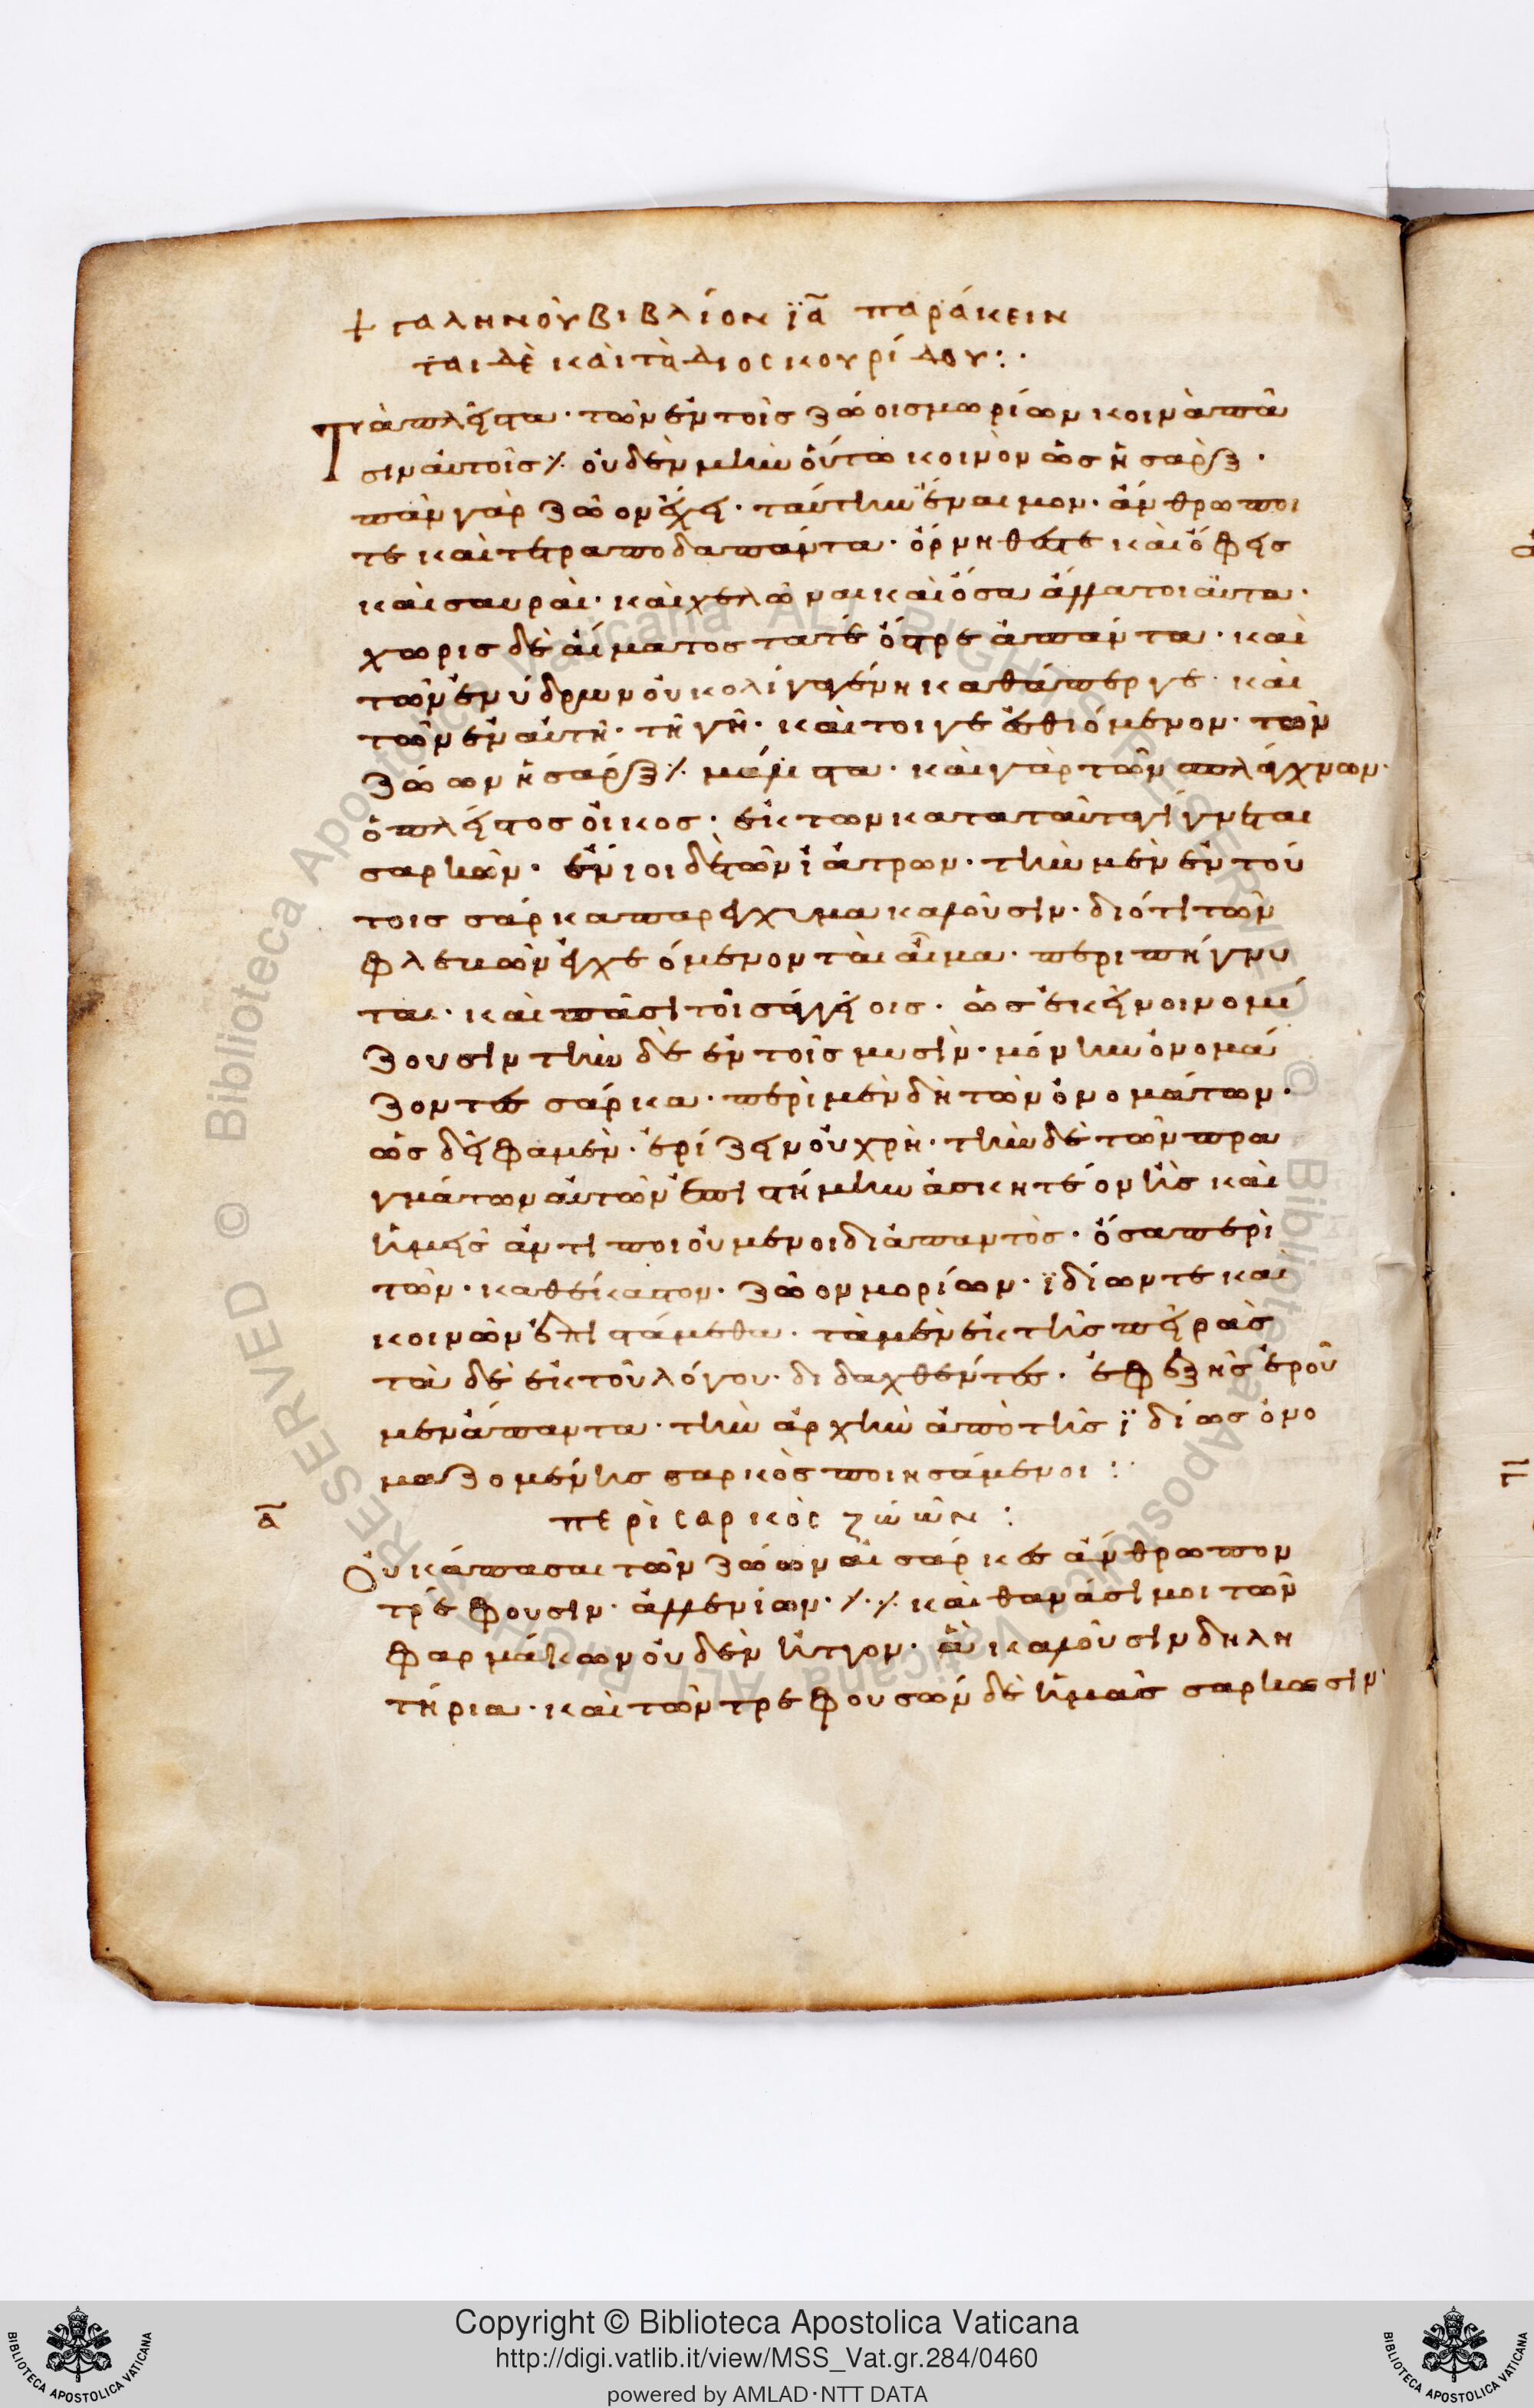 + γαληνοῦ βιβλίον ϊα παράκειν
ται δὲ καὶ τὰ διοσκουρίδου:·
Τὰ πλεῖστα· τῶν ἐν τοῖς ζώοις μωρίων κοινὰ πᾶ
σιν αὐτοῖς· οὐδὲν μὴν οὕτω κοινὸν ὡς ἡ σάρξ·
πᾶν γὰρ ζῶον ἔχει· ταύτην ἔναιμον· ἄνθρωποι
τε καὶ τετραποδα πάντα· ὄρνηθές τε καὶ ὄφεις
καὶ σαυραὶ· καὶ χελῶναι καὶ ὅσα ἄλλα τοιαῦτα·
χωρις δὲ αἵματος τά τε ὄστρε ἅπαντα· καὶ
τῶν ἐνύδρων οὐκ ολίγα γένη καθάπερ γε καὶ
τῶν ἐν αὐτῆ· τῆ γῆ· καὶ τοι γε ἐσθιόμενον· τῶν
ζώων ἡ σάρξ· μάλιστα· καὶ γὰρ τῶν σπλάχνων·
ὁ πλεῖστος οἶκος· ἐκ των κατα ταῦτα γίγνεται
σαρκῶν· ἔνιοι δὲ τῶν ϊάτρων· τὴν μὲν ἐν τού
τοις σάρκα παρέγχυμα καλοῦσιν· διότι τῶν
φλεβῶν ἐγχεόμενον τὰι αἷμα· περιπήγνυ
ται· καὶ πᾶσι τοῖς ἀγγείοις· ὡς ἐκεῖνοι νομί
ζουσιν τὴν δὲ ἐν τοῖς μυσὶν· μόνην ὀνομά
ζοντες σάρκα· περὶ μὲν δὴ τῶν ὀνομάτων·
ὡς δεῖ φαμὲν· ἐρίζειν οὐ χρὴ· τὴν δὲ τῶν πρα
γμάτων αὐτῶν ἐπιστήμην ἀσκητέον ἧς καὶ
ἡμεῖς ἀντιποιούμενοι διάπαντὸς· ὅσα περὶ
τῶν· καθέκαστον· ζῶον μορίων· ϊδίων τε και
κοινῶν ἐπιστάμεθα· τὰ μὲν ἐκ τῆς πείρας
τὰ δὲ ἐκ τοῦ λόγου· διδαχθέντες· ἐφεξῆς ἐροῦ
μεν ἅπαντα· τὴν ἀρχὴν ἀπὸ τῆς ϊδίως ὀνο
μαζομένης σαρκὸς ποιησάμενοι:
α περὶ σαρκὸς ζώων:
Οὐκ ἅπασαι τῶν ζώων αἱ σάρκες ἄνθρωπον
τρέφουσιν· ἀλλ ενίων· καὶ θανάσιμοι τῶν
φαρμάκων οὐδὲν ἧττον· ἃ καλοῦσιν δηλη
τήρια· καὶ τῶν τρεφουσῶν δὲ ἡμᾶς σαρκας ιν
Copyright © Biblioteca Apostolica Vaticana
http://digi.vatlib.it/view/MSS_Vat.gr.284/0460
powered by AMLAD·NTT DATA
BIBLIOTECA APOSTOLICA VATICANA
BIBLIOTECA APOSTOLICA VATICANA